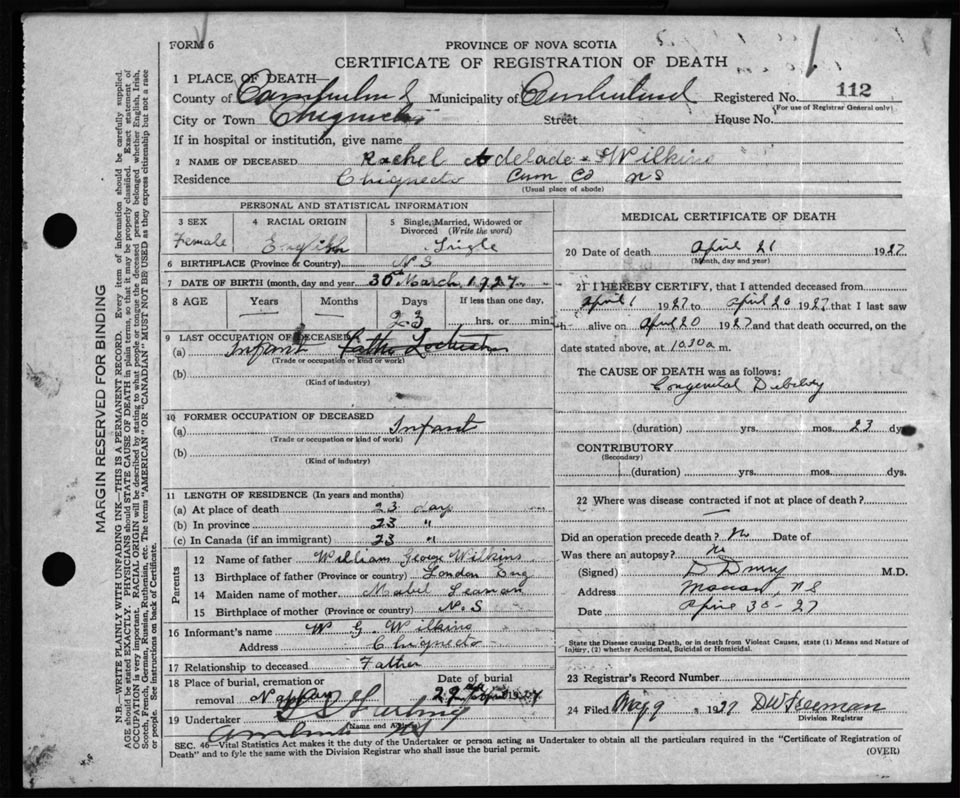 FORM 6
PROVINCE OF NOVA SCOTIA
CERTIFICATE OF REGISTRATION OF DEATH
1 PLACE OF DEATH—
County of Cumberland Municipality of Cumberland Registered No. 112
(For use of Registrar General only)
City or Town Chignecto Street House No.
If in hospital or institution, give name
2 NAME OF DECEASED Rachel Adelade Wilkins
Residence Chignecto Cum Co NS
(Usual place of abode)
PERSONAL AND STATISTICAL INFORMATION
3 SEX 4 RACIAL ORIGIN 5 Single, Married, Widowed or Divorced (Write the word)
Female English Single
6 BIRTHPLACE (Province or Country) N S
7 DATE OF BIRTH (month, day and year) 30th March, 1927
8 AGE Years Months Days If less than one day,
23 hrs. or min.
9 LAST OCCUPATION OF DECEASED
(a) Infant
(Trade or occupation or kind of work)
(b)
(Kind of industry)
10 FORMER OCCUPATION OF DECEASED
(a) Infant
(Trade or occupation or kind of work)
(b)
(Kind of industry)
11 LENGTH OF RESIDENCE (In years and months)
(a) At place of death 23 days
(b) In province 23 "
(c) In Canada (if an immigrant) 23 "
Parents
12 Name of father William George Wilkins
13 Birthplace of father (Province or country) London Eng
14 Maiden name of mother Mabel Seaman
15 Birthplace of mother (Province or country) N.S
16 Informant's name W G. Wilkins
Address Chignecto
17 Relationship to deceased Father
18 Place of burial, cremation or removal Nappan
Date of burial
19 Undertaker
(Name and Address)
Amherst NS
MEDICAL CERTIFICATE OF DEATH
20 Date of death April 21 1927
(Month, day and year)
21 I HEREBY CERTIFY, that I attended deceased from
April 1 1927 to April 20 1927 that I last saw
h alive on April 20 1927 and that death occurred, on
date stated above, at 10.30 a m.
The CAUSE OF DEATH was as follows:
Congenital Debility
(duration) yrs. mos. 23 dys.
CONTRIBUTORY
(Secondary)
(duration) yrs. mos. dys.
22 Where was disease contracted if not at place of death?
Did an operation precede death? No Date of
Was there an autopsy? No
(Signed) M.D.
Address Maccan, N S
Date April 30-27
State the Disease causing Death, or in death from Violent Causes, state (1) Means and Nature of
Injury, (2) whether Accidental, Suicidal or Homicidal.
23 Registrar's Record Number
24 Filed May 9 1927 D W Freeman
Division Registrar
SEC. 46—Vital Statistics Act makes it the duty of the Undertaker or person acting as Undertaker to obtain all the particulars required in the "Certificate of Registration of
Death" and to fyle the same with the Division Registrar who shall issue the burial permit.
(OVER)
MARGIN RESERVED FOR BINDING
N.B.—WRITE PLAINLY WITH UNFADING INK—THIS IS A PERMANENT RECORD. Every item of information should be carefully supplied.
AGE should be stated EXACTLY. PHYSICIANS should STATE CAUSE OF DEATH in plain terms, so that it may be properly classified. Exact statement of
OCCUPATION is very important. RACIAL ORIGIN will be described by stating to what people or tongue the deceased person belonged whether English, Irish,
Scotch, French, German, Russian, Ruthenian, etc. The terms "AMERICAN" OR "CANADIAN" MUST NOT BE USED as they express citizenship but not a race
or people. See instructions on back of Certificate.